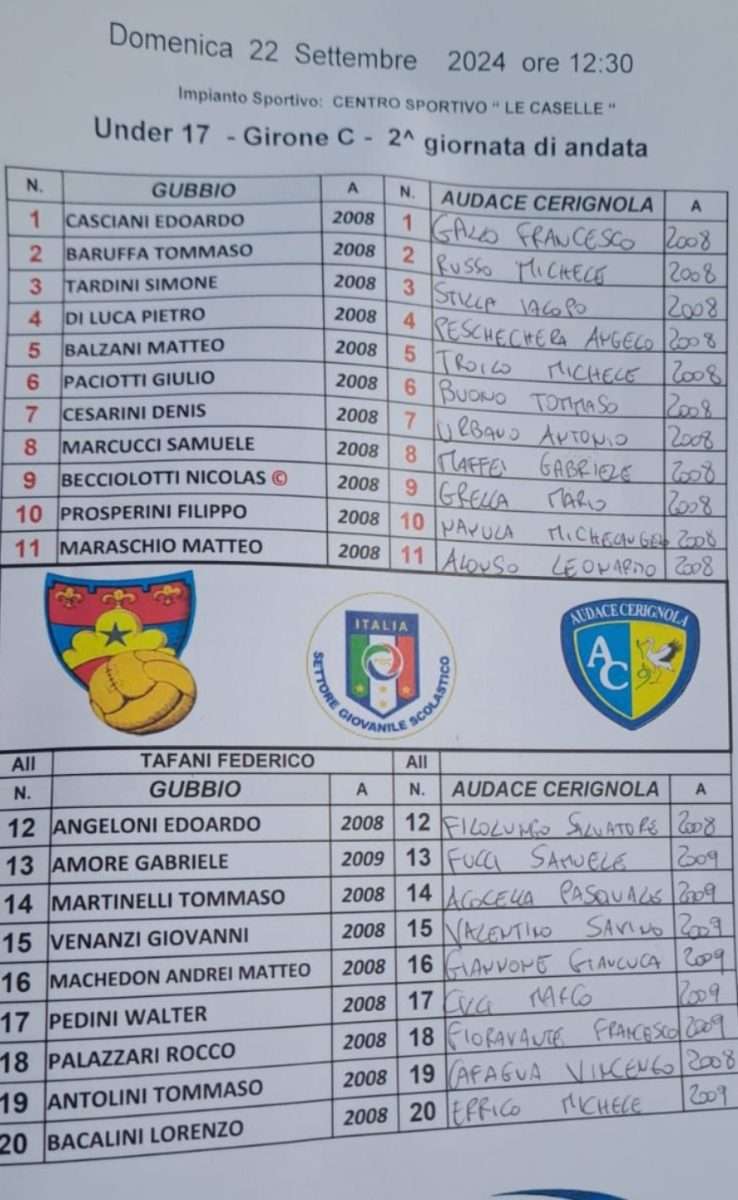 Domenica 22 Settembre 2024 ore 12:30
Impianto Sportivo: CENTRO SPORTIVO " LE CASELLE "
Under 17 - Girone C - 2^ giornata di andata
N. GUBBIO A N. AUDACE CERIGNOLA A
1 CASCIANI EDOARDO 2008 1 GALLO FRANCESCO 2008
2 BARUFFA TOMMASO 2008 2 RUSSO MICHELE 2008
3 TARDINI SIMONE 2008 3 STILLA IACOPO 2008
4 DI LUCA PIETRO 2008 4 PESCHECHERA ANGELO 2008
5 BALZANI MATTEO 2008 5 TROILO MICHELE 2008
6 PACIOTTI GIULIO 2008 6 BUONO TOMMASO 2008
7 CESARINI DENIS 2008 7 URBANO ANTONIO 2008
8 MARCUCCI SAMUELE 2008 8 MAFFEI GABRIELE 2008
9 BECCIOLOTTI NICOLAS © 2008 9 GRELLA MARIO 2008
10 PROSPERINI FILIPPO 2008 10 MICHELANGELO 2008
11 MARASCHIO MATTEO 2008 11 ALONSO LEONARDO 2008
ITALIA
FIGC
SETTORE GIOVANILE SCOLASTICO
AUDACE CERIGNOLA
AC
All TAFANI FEDERICO All
N. GUBBIO A N. AUDACE CERIGNOLA A
12 ANGELONI EDOARDO 2008 12 FILOLUNGO SALVATORE 2008
13 AMORE GABRIELE 2009 13 FUCCI SAMUELE 2009
14 MARTINELLI TOMMASO 2008 14 ACOCELLA PASQUALE 2009
15 VENANZI GIOVANNI 2008 15 VALENTINO SAVINO 2009
16 MACHEDON ANDREI MATTEO 2008 16 GIANNONE GIANLUCA 2009
17 PEDINI WALTER 2008 17 MARCO 2009
18 PALAZZARI ROCCO 2008 18 FIORAVANTE FRANCESCO 2009
19 ANTOLINI TOMMASO 2008 19 CAFAGNA VINCENZO 2008
20 BACALINI LORENZO 2008 20 ERRICO MICHELE 2009